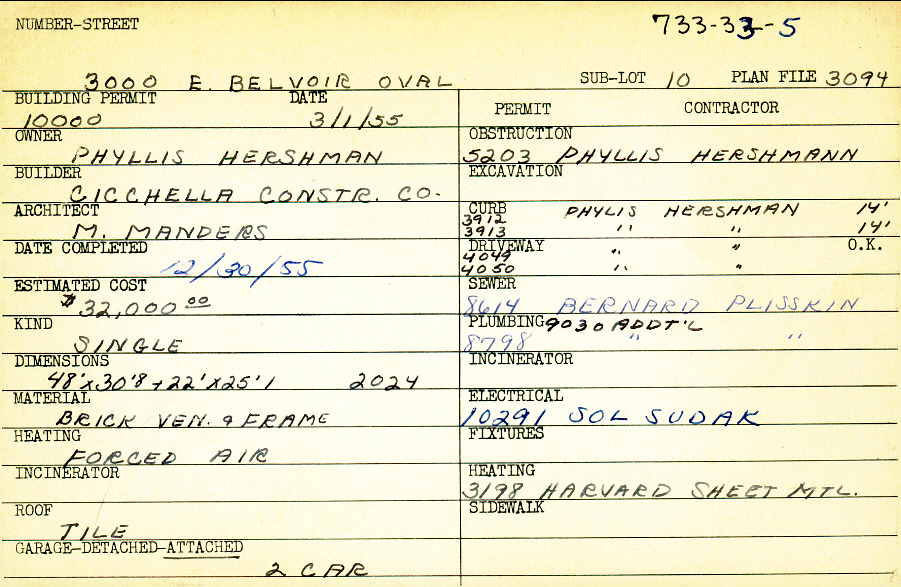 NUMBER-STREET 733-33-5
3000 E. BELVOIR OVAL SUB-LOT 10 PLAN FILE 3094
BUILDING PERMIT DATE PERMIT CONTRACTOR
10000 3/1/55
OWNER OBSTRUCTION
PHYLLIS HERSHMAN 5203 PHYLLIS HERSHMANN
BUILDER EXCAVATION
CICCHELLA CONSTR. CO.
ARCHITECT CURB PHYLIS HERSHMAN 14'
3912
M. MANDERS 3913 " " 14'
DATE COMPLETED DRIVEWAY " " O.K.
4049
12/30/55 4050 " "
ESTIMATED COST SEWER
$32,000.00 8614 BERNARD PLISSKIN
KIND PLUMBING 9030 ADDT'L
SINGLE 8798 " "
DIMENSIONS INCINERATOR
48'x30'8+22'x25'1 2024
MATERIAL ELECTRICAL
BRICK VEN. & FRAME 10291 SOL SUDAK
HEATING FIXTURES
FORCED AIR
INCINERATOR HEATING
3198 HARVARD SHEET MTL.
ROOF SIDEWALK
TILE
GARAGE-DETACHED-ATTACHED
2 CAR